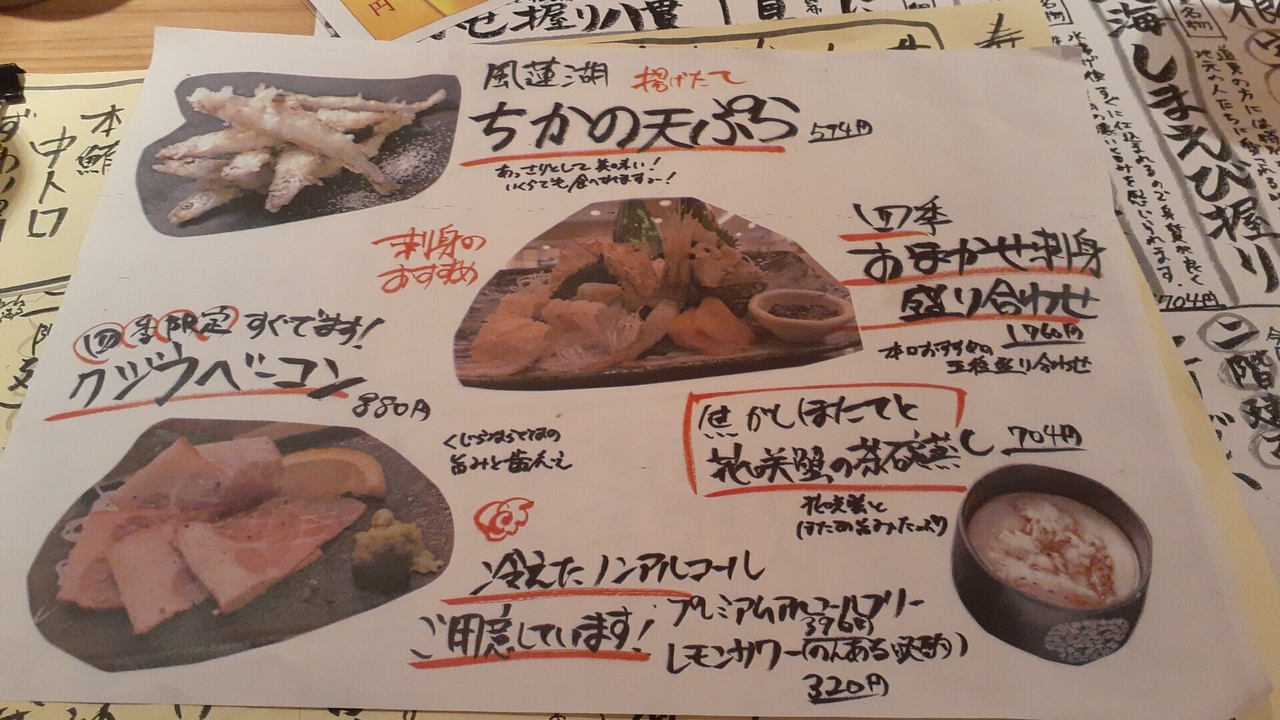 風蓮湖 揚げたて
ちかの天ぷら 594円
あっさりとして美味い!
いくらでも食べれますよー!
刺身の
おすすめ
四季
おまかせ刺身
盛り合わせ
1760円
本日おすすめの
五種盛り合わせ
四季限定 すぐでます!
クジラベーコン
880円
くじらならではの
旨みと歯ごたえ
焦がしほたてと
花咲蟹の茶碗蒸し 704円
花咲蟹と
ほたての旨みたっぷり
冷えたノンアルコール
ご用意しています!
プレミアムアルコールフリー
396円
レモンサワー(のんある晩酌)
320円
本鮪
中トロ
海しまえび握り
704円
握り八貫
円
二階建